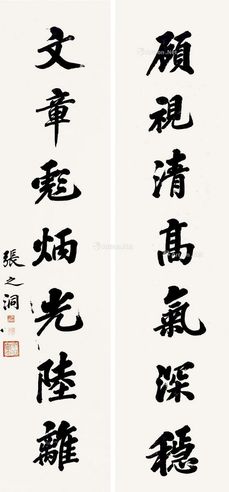 顧視清高氣深穩
文章彪炳光陸離
張之洞